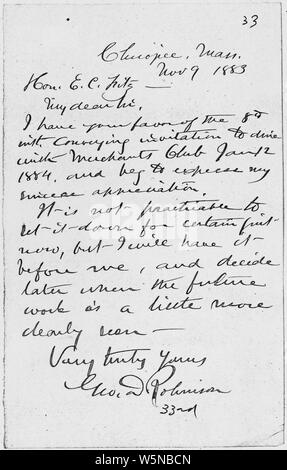 33
Chicopee, Mass.
Nov 9 1883
Hon. E. C. Fitz —
My dear Sir,
I have your favor of the 8th
inst. conveying invitation to dine
with Merchants Club Jan 12
1884, and beg to express my
sincere appreciation.
It is not practicable to
set it down for certain just
now, but I will have it
before me, and decide
later when the future
work is a little more
clearly seen —
Very truly yours
Geo. D. Robinson
33rd
alamy
Image ID: W5NBCN
www.alamy.com